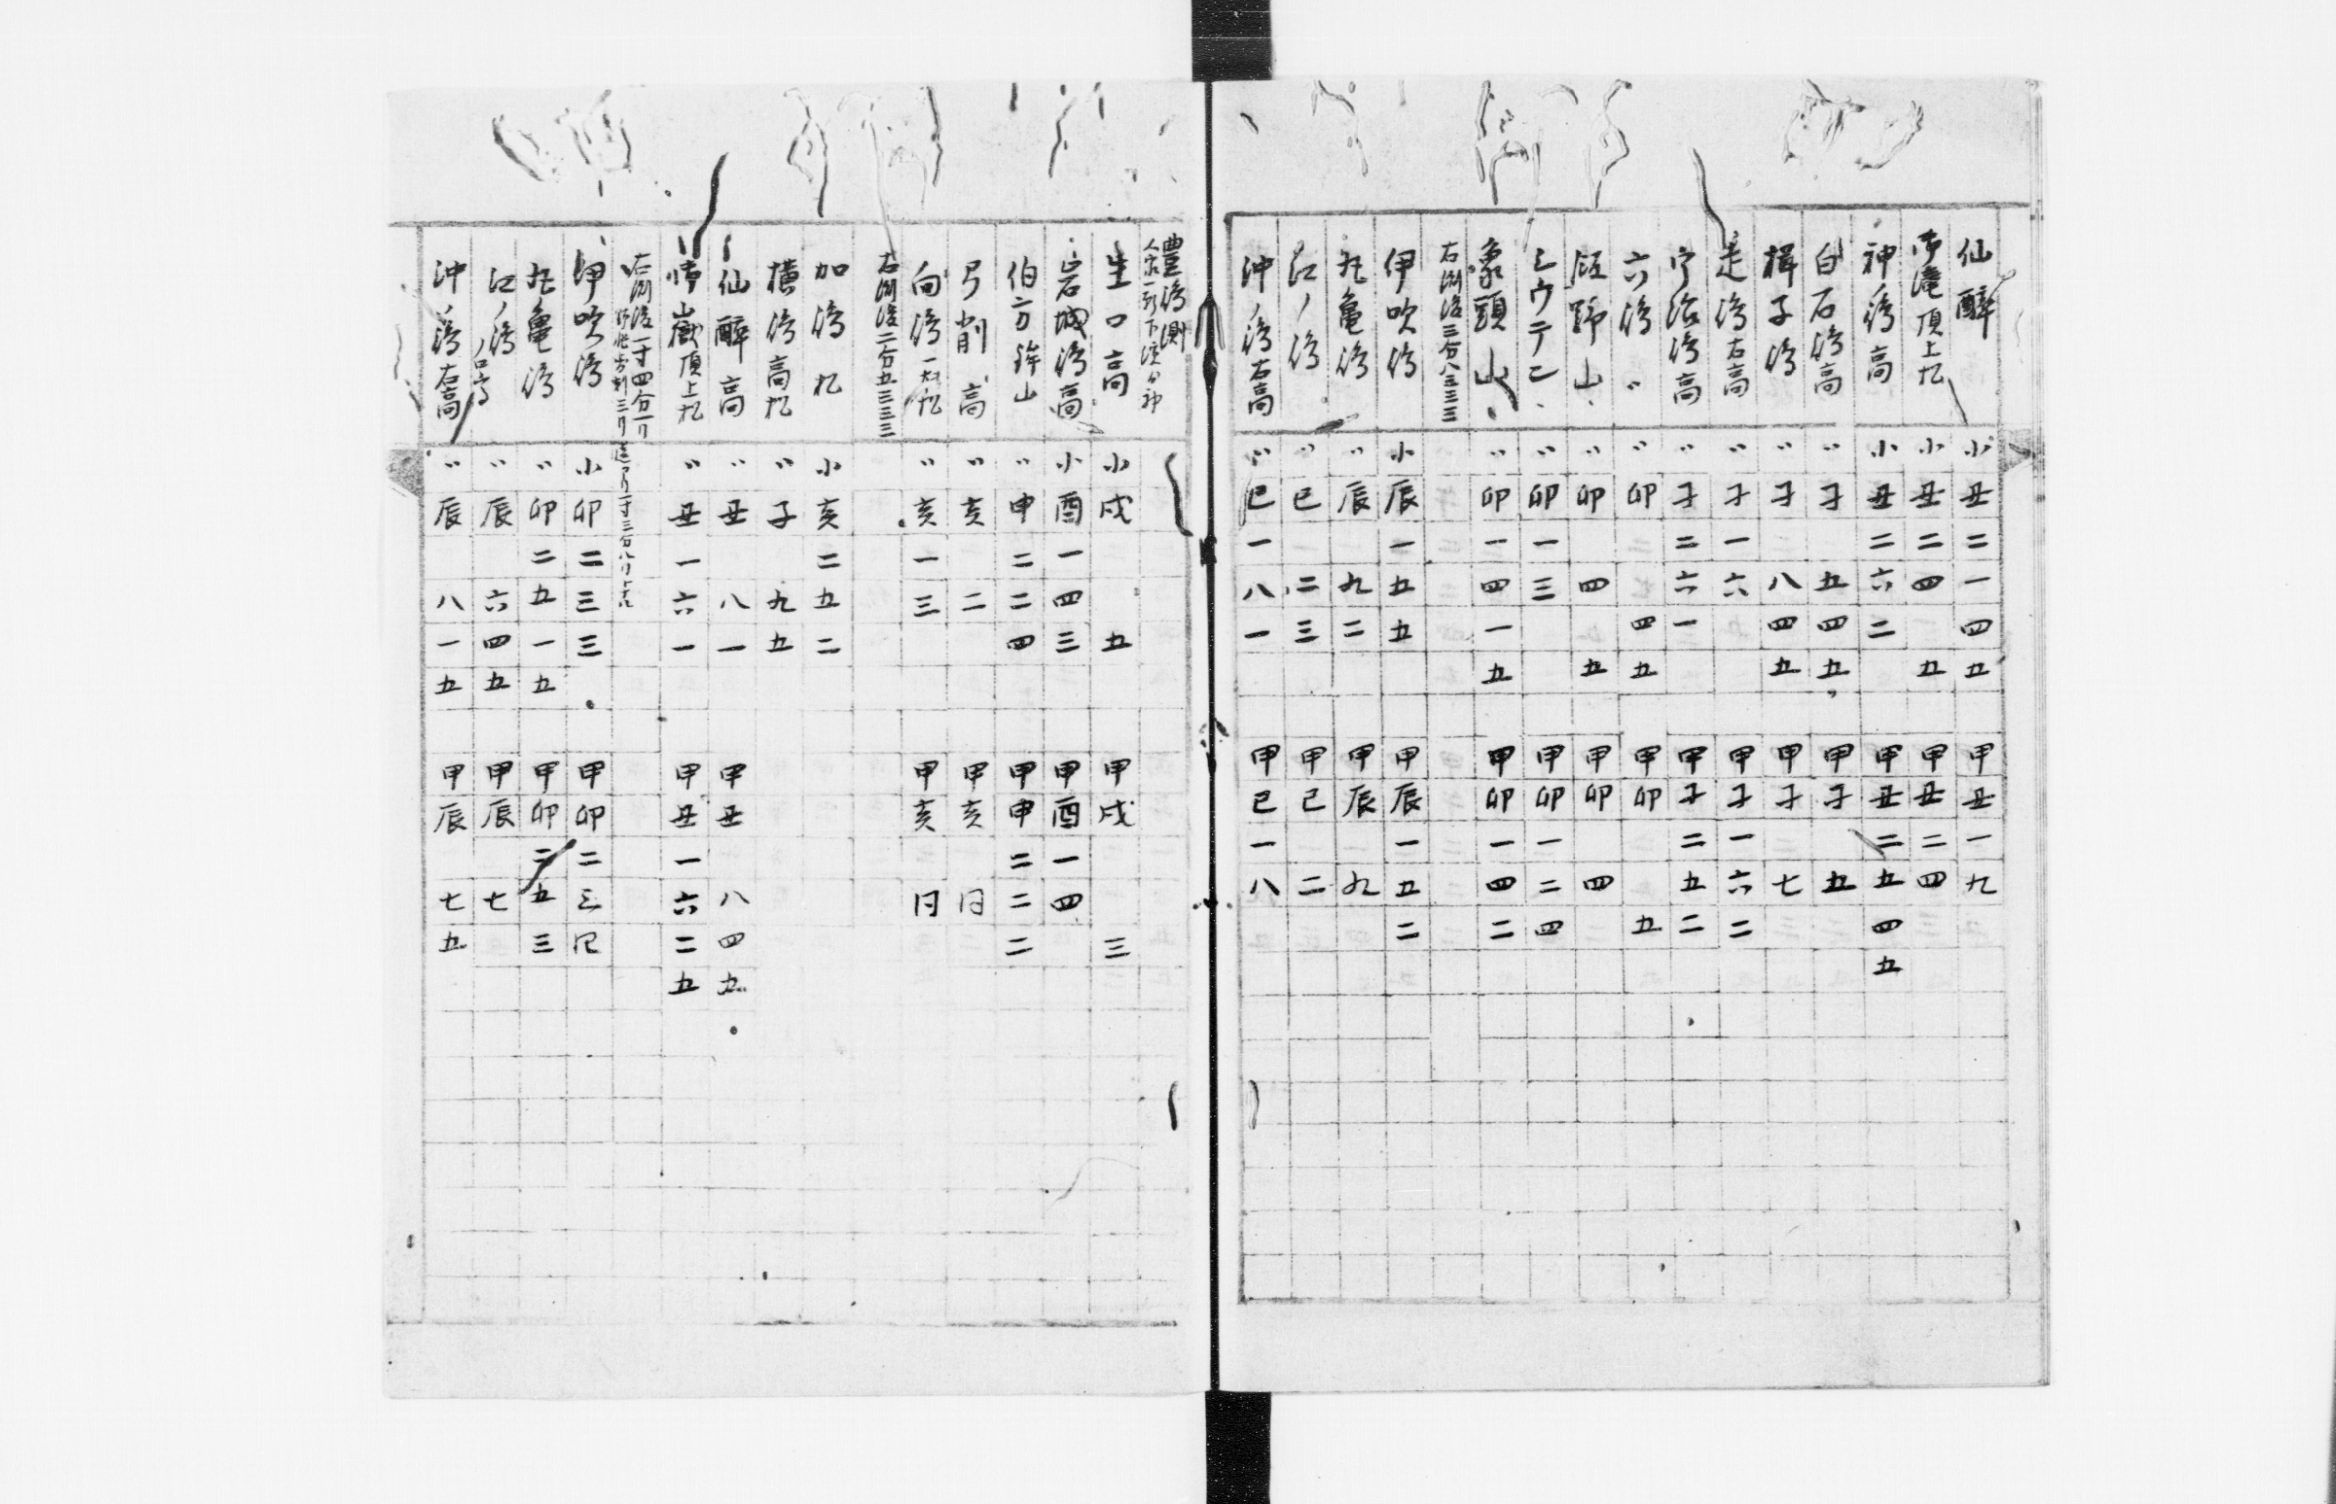 仙醉 小丑二一四五 甲丑一九
滝頂上 小丑二四 五 甲丑二四
神嶋高 小丑二六二 甲丑二五四五
白石嶋高 〃子 五四五 甲子 五
楫子嶋 〃子 八四五 甲子 七
走嶋右高 〃子一六 甲子一六二
宇治嶋高 〃子二六一 甲子二五二
六嶋〃 〃卯 四五 甲卯 五
山 〃卯 四 五 甲卯 四
ミウテニ 〃卯一三 甲卯一二四
象頭山 〃卯一四一五 甲卯一四二
右測後三分八三三三
伊吹嶋 小辰一五五 甲辰一五二
丸亀嶋 〃辰 九二 甲辰 九
江ノ嶋 〃巳 二三 甲巳 二
沖ノ嶋右高 〃巳一八一 甲巳一八
豊嶋測
生口高 小戌 五 甲戌 三
岩城嶋高 小酉一四三 甲酉一四
伯方鉾山 〃申二二四 甲申二二二
弓削高 〃亥 二 甲亥 同
向嶋 〃亥一三 甲亥 同
右測後二分五三三三
加嶋 小亥二五二
横嶋高 〃子 九五
仙醉高 〃丑 八一 甲丑 八四五
山嶽頂上 〃丑一六一 甲丑一六二五
右測後一寸四分一リ
伊吹嶋 小卯二三三 甲卯二三
丸亀嶋 〃卯二五一五 甲卯二五三
江ノ嶋 〃辰 六四五 甲辰 七
沖ノ嶋右高 〃辰 八一五 甲辰 七五